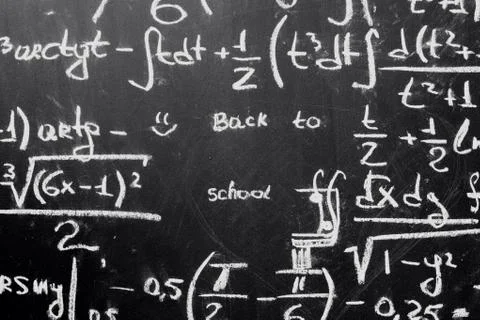 6
³ arctgt - ∫tdt + 1/2 (t³dt ∫ d(t²+
t²+1
-1) arctg - Back to t/2 + 1/2 ln
³√(6x-1)² school ∬ dxdy
2 √1-y²
- 0,5 (π/2 - π/6) - 0,25 =